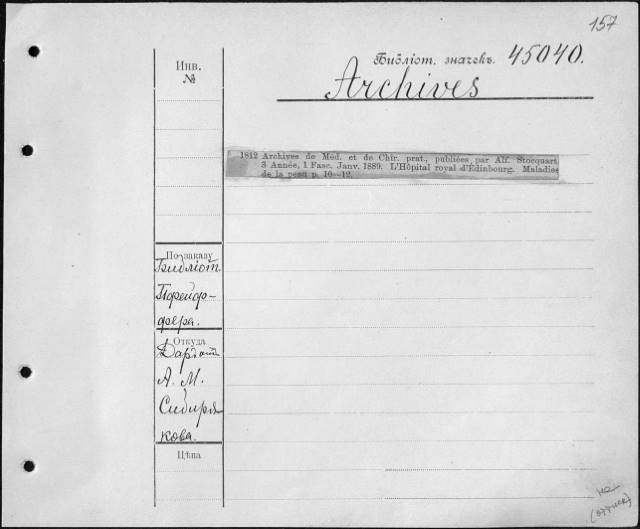 157
Инв.
№
Библіот. значекъ. 45040.
Archives
1812 Archives de Méd. et de Chir. prat., publiées par Alf. Stocquart.
3 Année, 1 Fasc. Janv. 1889. L'Hôpital royal d'Édinbourg. Maladies
de la peau p. 10—12.
По заказу
Библіот.
Пфейф-
фера.
Откуда
Даръ отъ
А. М.
Сибиря
кова.
Цѣна